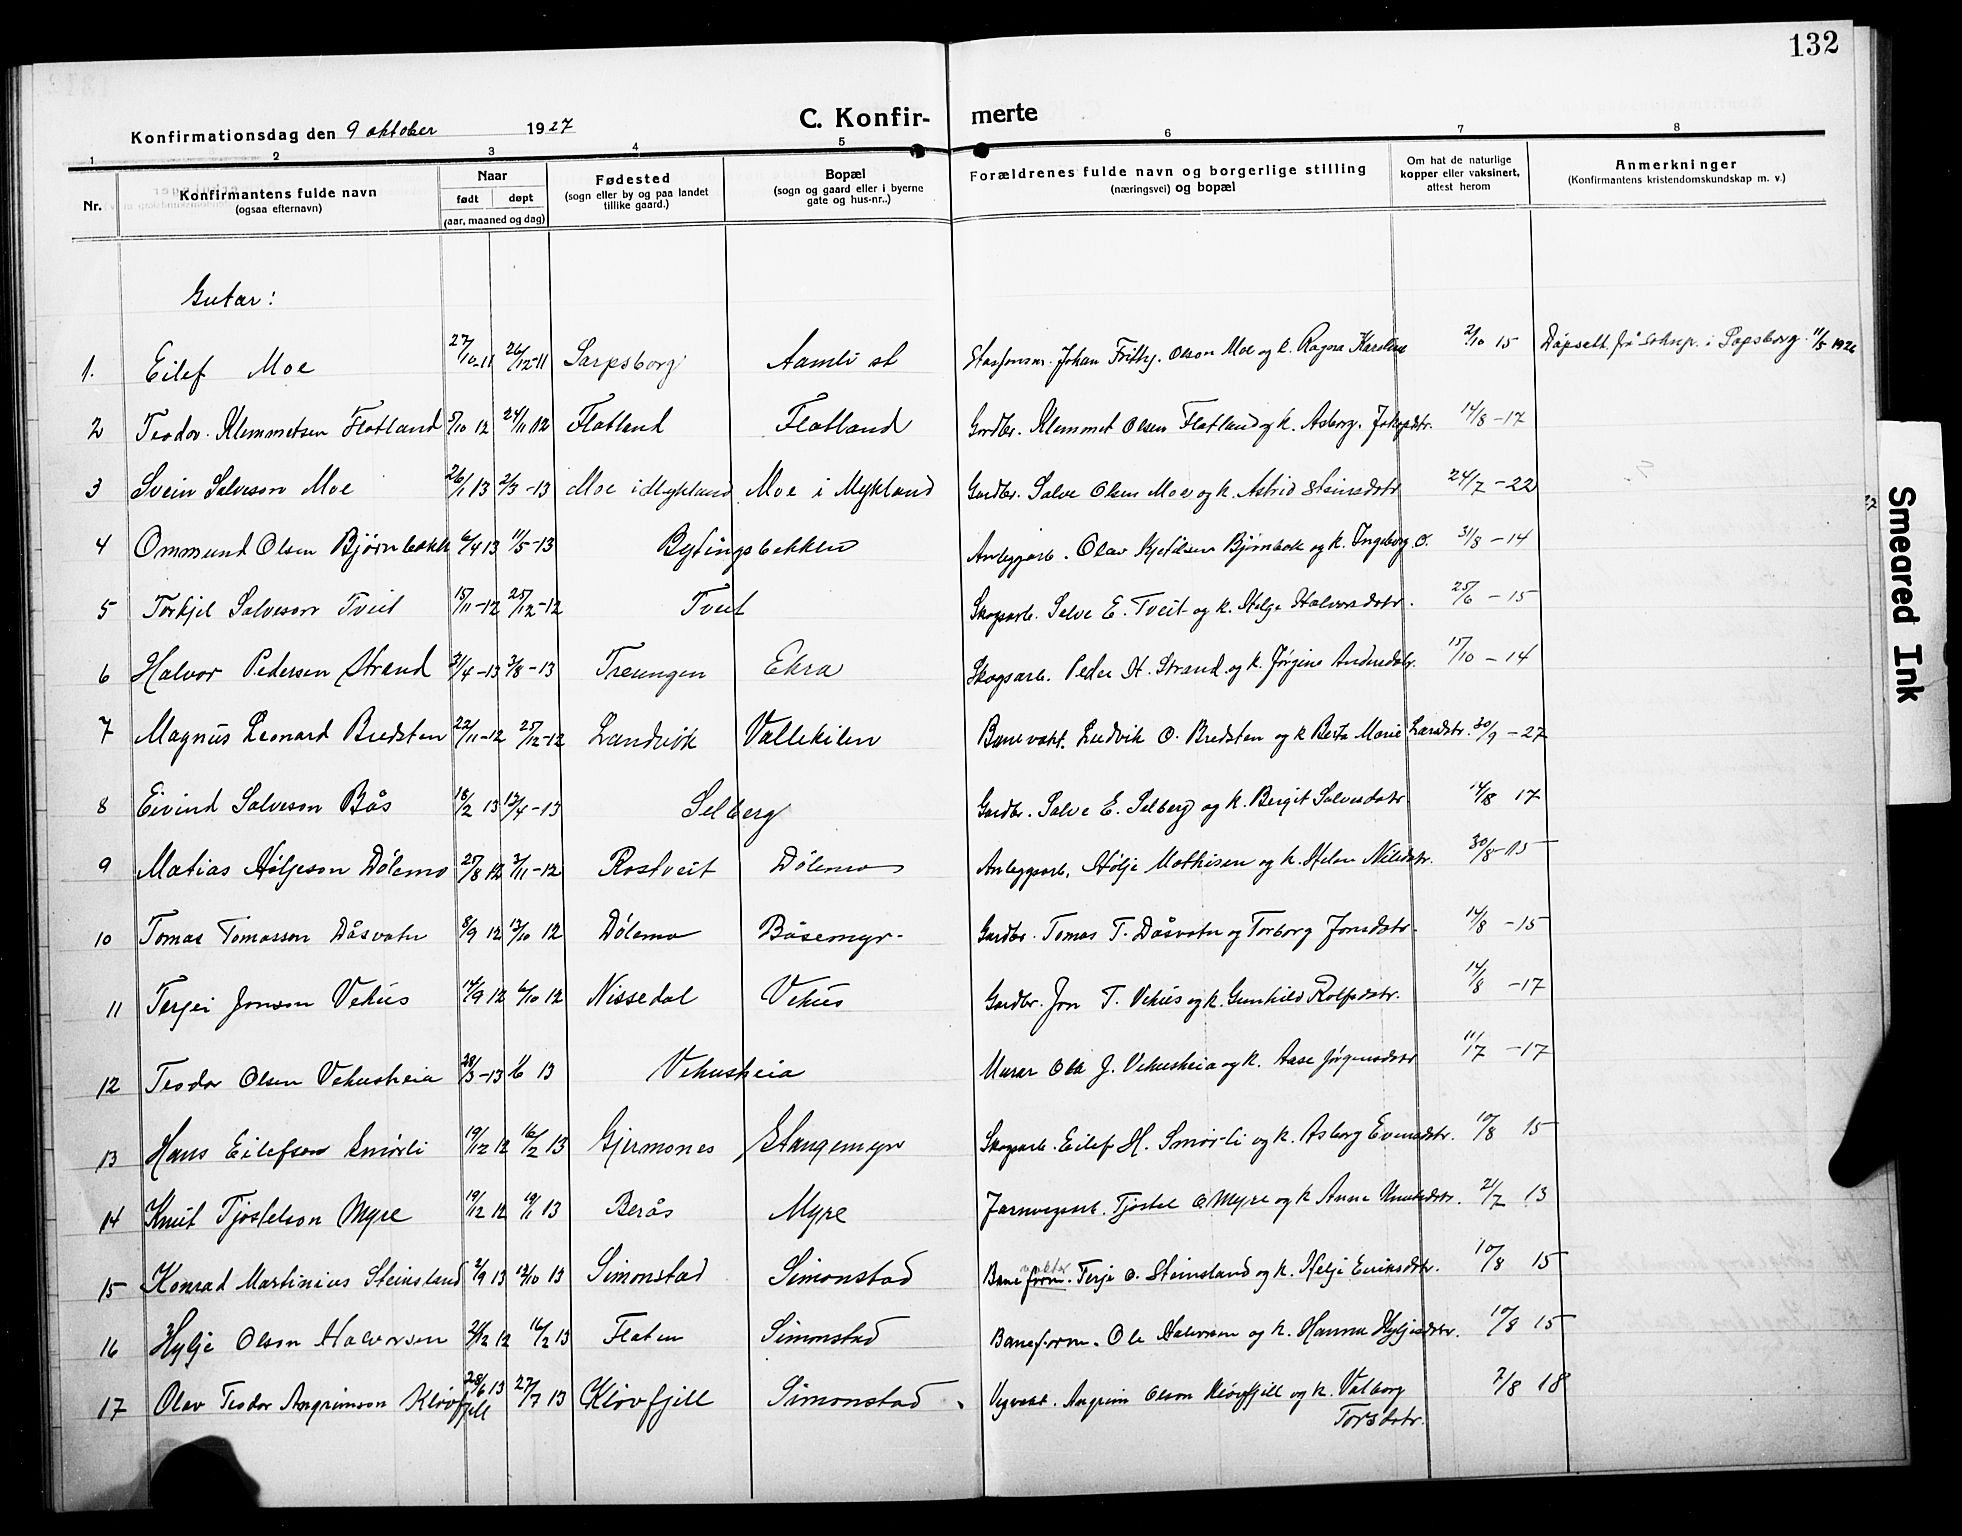 132
Konfirmationsdag den 9 oktober 1927
C. Konfir- merte
1 2 3 4 5 6 7 8
Nr.
Konfirmantens fulde navn
(ogsaa efternavn)
Naar
født døpt
(aar, maaned og dag)
Fødested
(sogn eller by og paa landet
tillike gaard.)
Bopæl
(sogn og gaard eller i byerne
gate og hus-nr..)
Forældrenes fulde navn og borgerlige stilling
(næringsvei) og bopæl
Om hat de naturlige
kopper eller vaksinert,
attest herom
Anmerkninger
(Konfirmantens kristendomskundskap m. v.)
Gutar:
1. Eilef Moe 27/10-11 26/12-11 Sarpsborg Aamli st Stasjonsm. Johan Olson Moe og k. Ragna Karoline 2/10 15 Dåpsatt. frå soknep. i Sapsborg 11/5 1926
2 Teodor Klemmetsen Flatland 5/10 12 24/11 12 Flatland Flatland Gardbr. Klemmet Olsen Flatland og k. Asborg Jakopdtr. 14/8-17
3 Svein Salveson Moe 26/1 13 2/3-13 Moe i Mykland Moe i Mykland Gardbr. Salve Olsen Moe og k. Astrid Steinsdotr 24/7-22
4 Ommund Olsen Bjørnbakk 6/4 13 11/5-13 Bytingsbekken Anleggsarb. Olav Kjetilsen Bjørnbak og k. Ingeborg O. 31/8-14
5 Torkjel Salveson Tveit 15/11-12 25/12-12 Tveit Skogsarb. Salve E. Tveit og k. Helge Halvorsdotr. 25/6-15
6 Halvor Pedersen Strand 21/4-13 3/8-13 Treungen Ekra Skogsarb. Peder H. Strand og k. Jørgine Andersdotr. 15/10-14
7 Magnus Leonard Bredsten 22/11-12 25/12-12 Landvik Vallekilen Banevakt. Ludvik O. Bredsten og k Berta Marie Larsdtr. 30/9-27
8 Eivind Salveson Bås 18/2 13 13/4-13 Selberg Gardbr. Salve E. Selberg og k. Bergit Salvesdotr 14/8 17
9 Matias Høljeson Dölemo 25/8 12 3/11-12 Rostveit Dölemo Anleggsarb. Hölje Mathisen og k. Helene Nilsdtr. 30/8-15
10 Tomas Tomasson Dåsvatn 8/9 12 13/10 12 Dölemo Båsemyr Gardbr. Tomas T. Dåsvatn og Torborg Jonsdotr. 14/8-15
11 Terjei Jonson Vehus 14/9 12 6/10 12 Nissedal Vehus Gardbr. Jon T. Vehus og k. Gunhild Rolfsdotr. 14/8-17
12 Teodor Olsen Vehusheia 28/3-13 1/6 13 Vehusheia Murar Ola J. Vehusheia og k. Aase Jörgensdotr 11/7-17
13 Hans Eilefson Smörli 19/12 12 16/2 13 Gjermones Stangemyr Skogsarb. Eilef H. Smörli og k. Asborg Evensdotr. 10/8 15
14 Knut Tjostelson Myre 19/12 12 19/1 13 Berås Myre Jarnvegsarb. Tjöstel O Myre og k Anne Knutsdotr. 21/7 13
15 Konrad Martinius Steinsland 2/9 13 12/10 13 Simonstad Simonstad Baneform. vakter Terje O. Steinsland og k. Helje Eriksdotr. 10/8 15
16 Hylje Olson Halvorsen 21/12 12 16/2 13 Flaten Simonstad Baneform. Ole Halvorsen og k. Hanna Hyljesdotr. 10/8 15
17 Olav Teodor Angrimson Klövfjell 28/6 13 27/7 13 Klövfjill Simonstad Vegvakt. Angrim Olson Klövfjill og k. Valborg 7/8 18
Torsdotr.
Smeared Ink